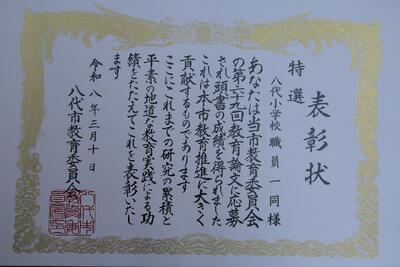 表彰状
特選
八代小学校 職員一同様
あなたは当市教育委員会
の第三十九回教育論文に応募
され頭書の成績を得られました
これは本市教育推進に大きく
貢献するものであります
ここにこれまでの研究の累積と
平素の地道な教育実践による功
績をたたえてこれを表彰いたし
ます
令和八年三月十日
八代市教育委員会